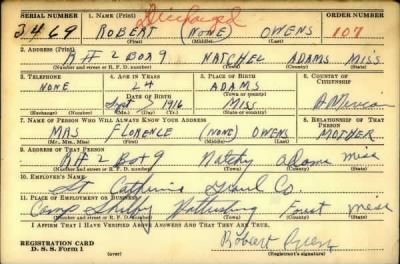 SERIAL NUMBER 1. NAME (Print) Discharged ORDER NUMBER
3469 ROBERT (NONE) OWENS 107
(First) (Middle) (Last)
2. ADDRESS (Print)
R# 2 BOX 9 NATCHEL ADAMS MISS
(Number and street or R. F. D. number) (Town) (County) (State)
3. TELEPHONE 4. AGE IN YEARS 5. PLACE OF BIRTH 6. COUNTRY OF CITIZENSHIP
NONE 24 ADAMS
DATE OF BIRTH (Town or county)
Sept 1916 MISS America
(Exchange) (Number) (Mo.) (Day) (Yr.) (State or country)
7. NAME OF PERSON WHO WILL ALWAYS KNOW YOUR ADDRESS 8. RELATIONSHIP OF THAT PERSON
MRS FLORENCE (NONE) OWENS MOTHER
(Mr., Mrs., Miss) (First) (Middle) (Last)
9. ADDRESS OF THAT PERSON
R# 2 Box 9 Natchy adams miss
(Number and street or R. F. D. number) (Town) (County) (State)
10. EMPLOYER'S NAME
St Catherine Gravel Co.
11. PLACE OF EMPLOYMENT OR BUSINESS
Camp Shelby Hattiesburg Forest Miss
(Number and street or R. F. D. number) (Town) (County) (State)
I AFFIRM THAT I HAVE VERIFIED ABOVE ANSWERS AND THAT THEY ARE TRUE.
Robert Owens
REGISTRATION CARD
D. S. S. Form 1 (over) (Registrant's signature)